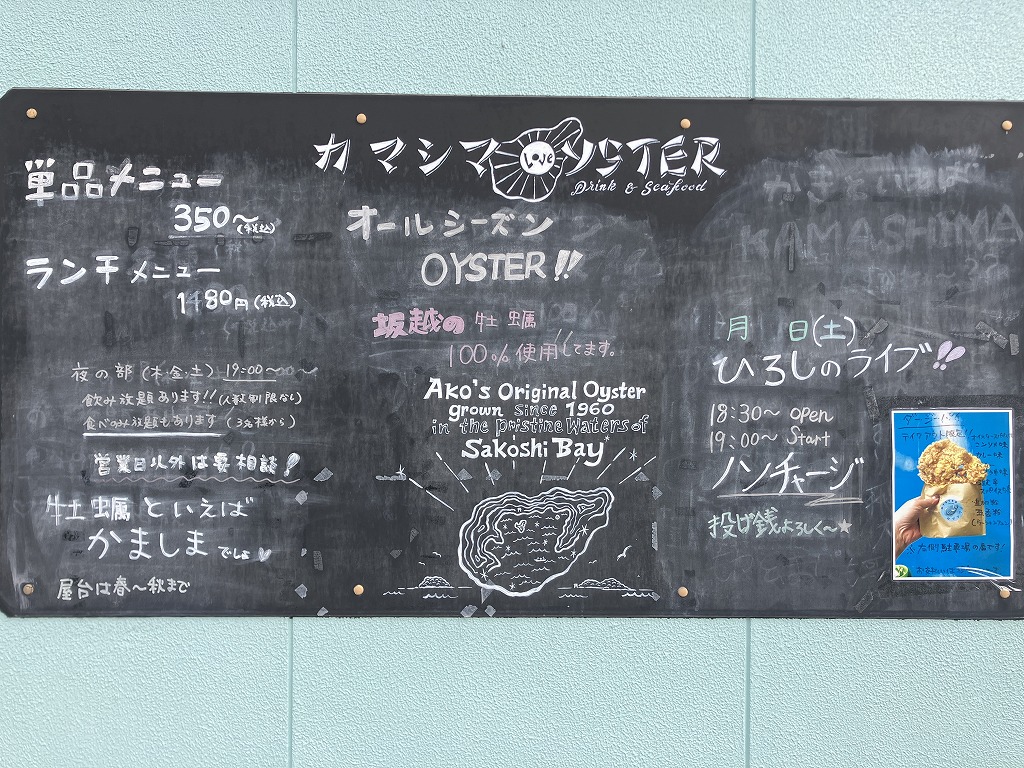 カマシマ OYSTER
Love
Drink & Seafood
単品メニュー
350〜(税込)
ランチメニュー
1480円(税込)
夜の部(木・金・土)19:00〜
飲み放題あります!!(人数制限なし)
食べのみ放題もあります(3名様から)
営業日以外は要相談!
牡蠣といえば
かましまでしょ
屋台は春〜秋まで
オールシーズン
OYSTER!!
坂越の牡蠣
100%使用してます。
Ako's Original Oyster
grown since 1960
in the pristine waters of
Sakoshi Bay
KAMASHIMA
月 日(土)
ひろしのライブ!!
18:30〜 open
19:00〜 Start
ノンチャージ
投げ銭よろしく〜★
テイクアウト限定!!
カレー味
右側駐車場の奥です!